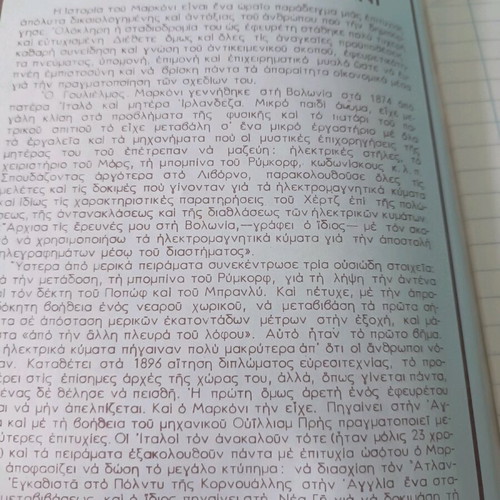 Ἡ ἱστορία τοῦ Μαρκόνι εἶναι ἕνα ὡραῖο παράδειγμα μιᾶς ἐπιτυχίας
ἀπόλυτα δικαιολογημένης καί ἀντάξιας τοῦ ἀνθρώπου πού τήν δημιούρ-
γησε. Ὁλόκληρη ἡ σταδιοδρομία του ὡς ἐφευρέτη στάθηκε πολύ τυχερή
καί εὐτυχισμένη. Διέθετε ὅμως καί ὅλες τίς ἀναγκαῖες προϋποθέσεις:
καθαρή συνείδηση καί γνώση τοῦ ἀντικειμενικοῦ σκοποῦ, ἐφευρετικό-
τα πνεύματος, ὑπομονή, ἐπιμονή καί ἐπιχειρηματικό μυαλό ὥστε νά ἐμ-
πνέη ἐμπιστοσύνη καί νά βρίσκη πάντα τά ἀπαραίτητα οἰκονομικά μέσα
γιά τήν πραγματοποίηση τῶν σχεδίων του.
Ὁ Γουλιέλμος Μαρκόνι γεννήθηκε στή Βολωνία στά 1874 ἀπό
πατέρα Ἰταλό καί μητέρα Ἰρλανδέζα. Μικρό παιδί ἀκόμα, εἶχε με-
γάλη κλίση στά προβλήματα τῆς φυσικῆς καί τό πατάρι τοῦ πα-
τρικοῦ σπιτιοῦ τό εἶχε μεταβάλη σ' ἕνα μικρό ἐργαστήριο μέ ὅλα
τά ἐργαλεῖα καί τά μηχανήματα πού οἱ μυστικές ἐπιχορηγήσεις τῆς
μητέρας του τοῦ ἐπέτρεπαν νά μαζεύη: ἠλεκτρικές στῆλες, τό
χειριστήριο τοῦ Μόρς, τή μπομπίνα τοῦ Ρύμκορφ, κωδωνίσκους κ.λ.π.
Σπουδάζοντας ἀργότερα στό Λιβόρνο, παρακολουθοῦσε ὅλες τίς
μελέτες καί τίς δοκιμές πού γίνονταν γιά τά ἠλεκτρομαγνητικά κύματα
καί ἰδίως τίς χαρακτηριστικές παρατηρήσεις τοῦ Χέρτζ ἐπί τῆς πολώ-
σεως, τῆς ἀντανακλάσεως καί τῆς διαθλάσεως τῶν ἠλεκτρικῶν κυμάτων.
Ἄρχισα τίς ἔρευνές μου στή Βολωνία,—γράφει ὁ ἴδιος— μέ τόν σκο-
πό νά χρησιμοποιήσω τά ἠλεκτρομαγνητικά κύματα γιά τήν ἀποστολή
τηλεγραφημάτων μέσω τοῦ διαστήματος».
Ὕστερα ἀπό μερικά πειράματα συνεκέντρωσε τρία οὐσιώδη στοιχεῖα:
ιά τήν μετάδοση, τή μπομπίνα τοῦ Ρύμκορφ, γιά τή λήψη τήν ἀντένα
καί τόν δέκτη τοῦ Ποπώφ καί τοῦ Μπρανλύ. Καί πέτυχε, μέ τήν ἀπρο-
δόκητη βοήθεια ἑνός νεαροῦ χωρικοῦ, νά μεταβιβάση τά πρῶτα σή-
τα σέ ἀπόσταση μερικῶν ἑκατοντάδων μέτρων στήν ἐξοχή, καί μά-
στα «ἀπό τήν ἄλλη πλευρά τοῦ λόφου». Αὐτό ἦταν τό πρῶτο βῆμα.
ἠλεκτρικά κύματα πήγαιναν πολύ μακρύτερα ἀπ' ὅτι οἱ ἄνθρωποι νό-
αν. Καταθέτει στά 1896 αἴτηση διπλώματος εὑρεσιτεχνίας, τό προ-
έρει στίς ἐπίσημες ἀρχές τῆς χώρας του, ἀλλά, ὅπως γίνεται πάντα,
ένας δέ θέλησε νά πεισθῆ. Ἡ πρώτη ὅμως ἀρετή ἑνός ἐφευρέτου
αι νά μήν ἀπελπίζεται. Καί ὁ Μαρκόνι τήν εἶχε. Πηγαίνει στήν Ἀγ-
α καί μέ τή βοήθεια τοῦ μηχανικοῦ Οὐΐλλιαμ Πρής πραγματοποιεῖ με-
ύτερες ἐπιτυχίες. Οἱ Ἰταλοί τόν ἀνακαλοῦν τότε (ἦταν μόλις 23 χρο-
) καί τά πειράματα ἐξακολουθοῦν πάντα μέ ἐπιτυχία ὡσότου ὁ Μαρ-
ἀποφασίζει νά δώση τό μεγάλο κτύπημα: νά διασχίση τόν Ἀτλαν-
Ἐγκαθιστᾶ στό Πόλντυ τῆς Κορνουάλλης στήν Ἀγγλία ἕνα στα-